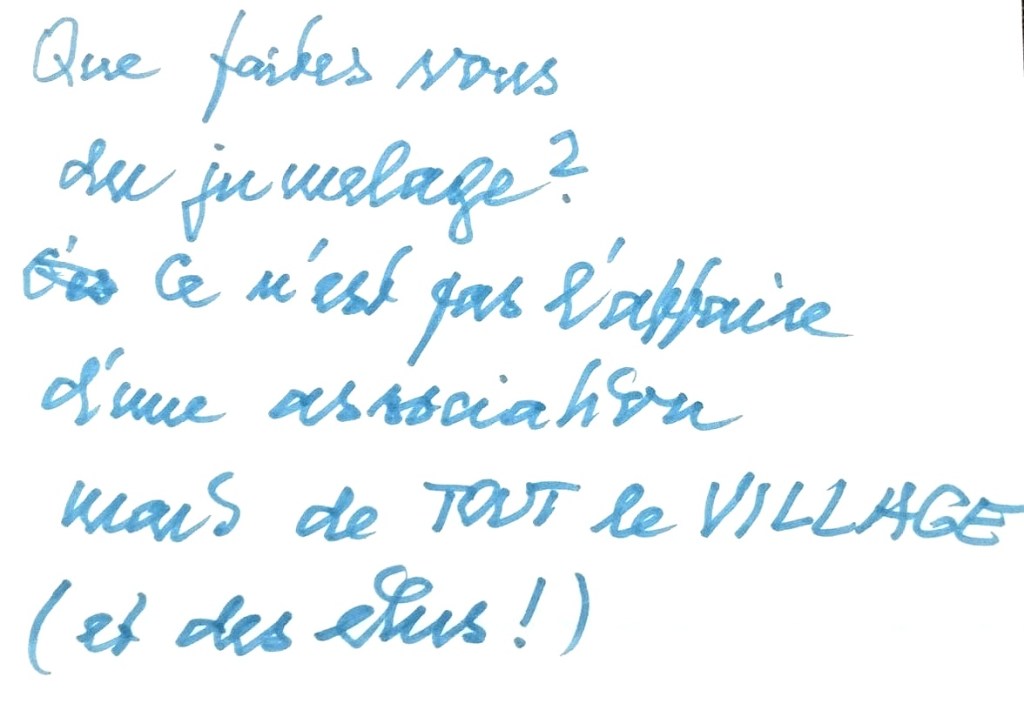 Que faites vous
du jumelage?
Ce n'est pas l'affaire
d'une association
mais de TOUT le VILLAGE
(et des élus!)